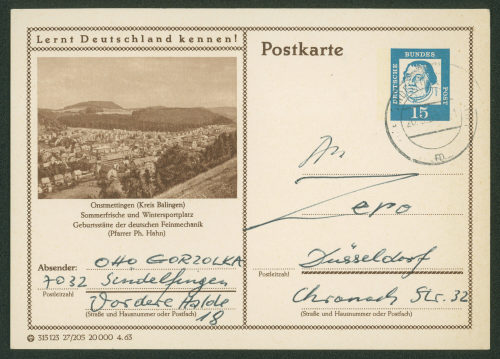 Lernt Deutschland kennen!
Onstmettingen (Kreis Balingen)
Sommerfrische und Wintersportplatz
Geburtsstätte der deutschen Feinmechanik
(Pfarrer Ph. Hahn)
Absender: OTTO GORZOLKA
7032 Sindelfingen
Postleitzahl
Vordere Halde
18
(Straße und Hausnummer oder Postfach)
315123 27/205 20 000 4.63
Postkarte
DEUTSCHE BUNDES POST
15
An
Zero
Düsseldorf
Postleitzahl
Str. 32
(Straße und Hausnummer oder Postfach)